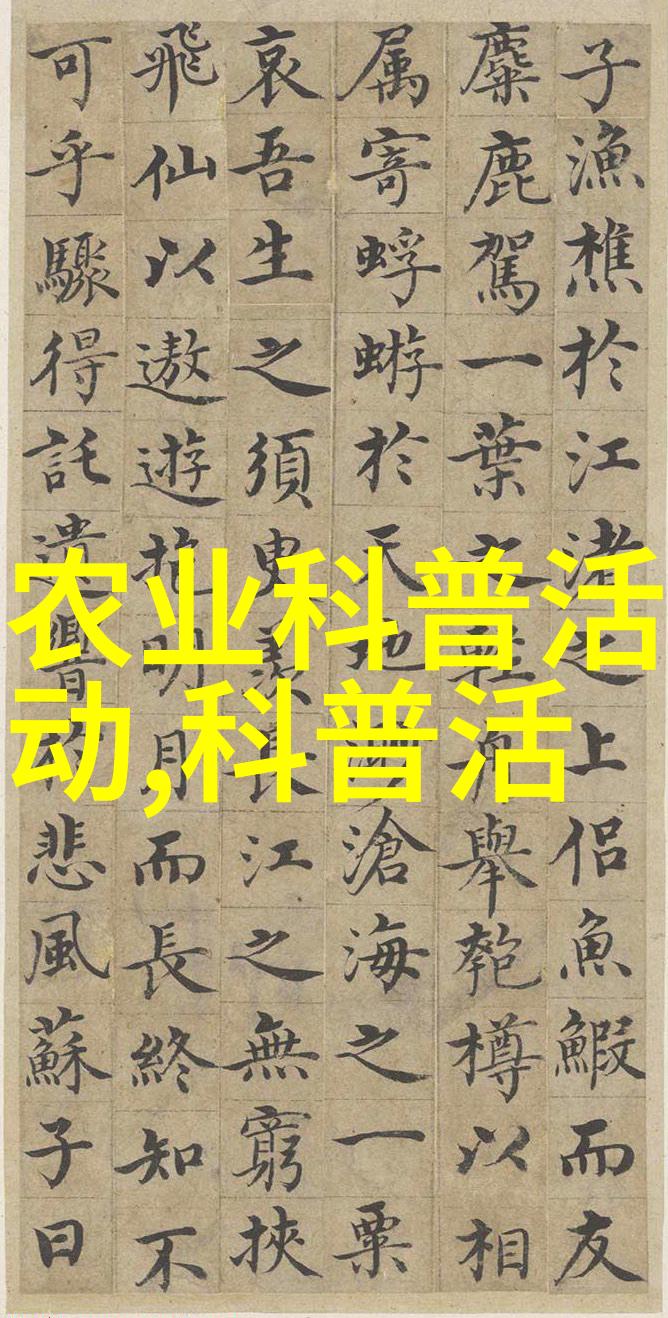 子漁樵於江渚之上侣魚鰕而友
麋鹿駕一葉之輕舟舉匏樽以相
属寄蜉蝣於天地渺滄海之一粟
哀吾生之須臾羨長江之無窮挾
飛仙以遨遊抱明月而長終知不
可乎驟得託遺響於悲風蘇子曰
农业科普活
动,科普活